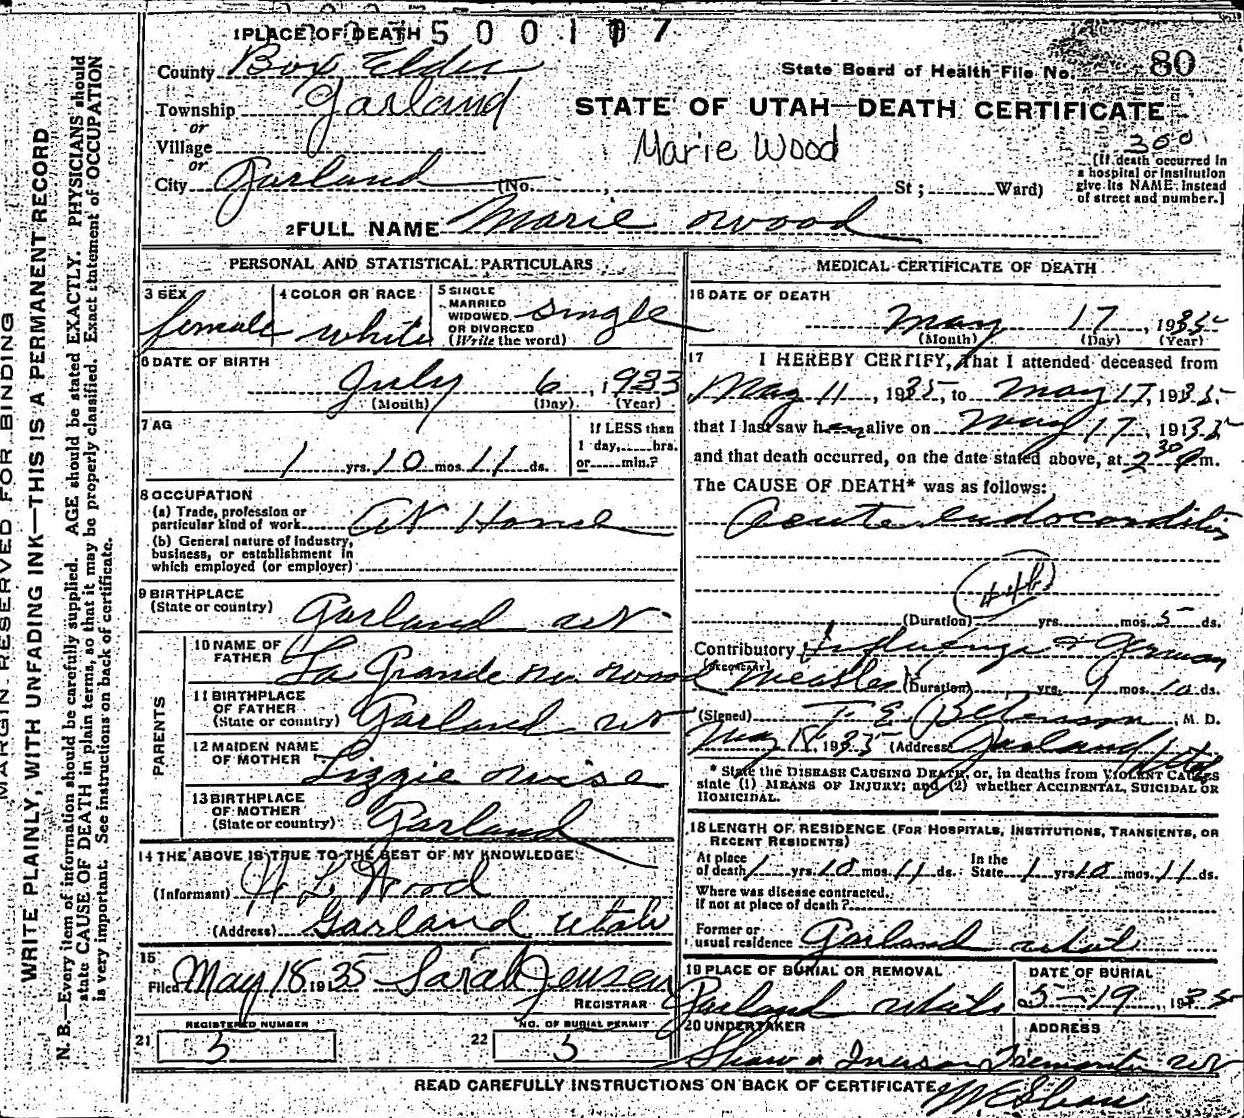 1 PLACE OF DEATH 500107
County Box Elder
State Board of Health File No. 80
Township Garland
or
STATE OF UTAH—DEATH CERTIFICATE
Village
Marie Wood
300
or
City Garland (No. , St ; Ward)
[If death occurred in
a hospital or institution
give its NAME instead
of street and number.]
2 FULL NAME Marie Wood
PERSONAL AND STATISTICAL PARTICULARS
3 SEX
female
4 COLOR OR RACE
white
5 SINGLE
MARRIED
WIDOWED
OR DIVORCED
(Write the word)
single
6 DATE OF BIRTH
July 6, 1933
(Month) (Day) (Year)
7 AG
1 yrs. 10 mos. 11 ds.
If LESS than
1 day, hrs.
or min.?
8 OCCUPATION
(a) Trade, profession or
particular kind of work At Home
(b) General nature of industry,
business, or establishment in
which employed (or employer)
9 BIRTHPLACE
(State or country) Garland Ut
PARENTS
10 NAME OF
FATHER La Grande Wood
11 BIRTHPLACE
OF FATHER
(State or country) Garland Ut
12 MAIDEN NAME
OF MOTHER Lizzie
13 BIRTHPLACE
OF MOTHER
(State or country) Garland
14 THE ABOVE IS TRUE TO THE BEST OF MY KNOWLEDGE
(Informant) L Wood
(Address) Garland Utah
15
Filed May 18 1935 Sarah Jensen
REGISTRAR
21 REGISTERED NUMBER
3
22 NO. OF BURIAL PERMIT
3
MEDICAL CERTIFICATE OF DEATH
16 DATE OF DEATH
May 17, 1935
(Month) (Day) (Year)
17 I HEREBY CERTIFY, That I attended deceased from
May 11, 1935, to May 17, 1935
that I last saw her alive on May 17, 1935
and that death occurred, on the date stated above, at 2 30 m.
The CAUSE OF DEATH* was as follows:
Acute endocarditis
(Duration) yrs. mos. 5 ds.
Contributory Influenza & German
(SECONDARY) Measles (Duration) yrs. mos. 10 ds.
(Signed) , M. D.
May 18, 1935 (Address) Garland Utah
* State the DISEASE CAUSING DEATH, or, in deaths from VIOLENT CAUSES
state (1) MEANS OF INJURY; and (2) whether ACCIDENTAL, SUICIDAL OR
HOMICIDAL.
18 LENGTH OF RESIDENCE (FOR HOSPITALS, INSTITUTIONS, TRANSIENTS, OR
RECENT RESIDENTS)
At place
of death 1 yrs. 10 mos. 11 ds. In the
State 1 yrs 10 mos. 11 ds.
Where was disease contracted,
if not at place of death?
Former or
usual residence Garland Utah
19 PLACE OF BURIAL OR REMOVAL
Garland Utah
DATE OF BURIAL
5-19, 1935
20 UNDERTAKER
Shaw & Iverson
ADDRESS
Tremonton Ut
READ CAREFULLY INSTRUCTIONS ON BACK OF CERTIFICATE
MARGIN RESERVED FOR BINDING
WRITE PLAINLY, WITH UNFADING INK—THIS IS A PERMANENT RECORD
N. B.—Every item of information should be carefully supplied. AGE should be stated EXACTLY. PHYSICIANS should
state CAUSE OF DEATH in plain terms, so that it may be properly classified. Exact statement of OCCUPATION
is very important. See instructions on back of certificate.